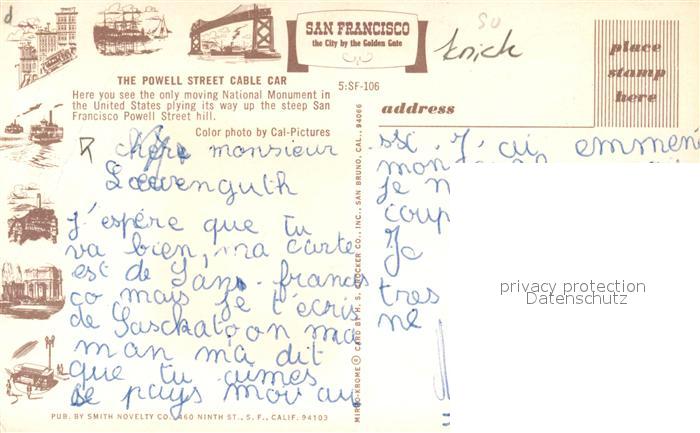 SAN FRANCISCO
the City by the Golden Gate
place
stamp
here
THE POWELL STREET CABLE CAR
5:SF-106
Here you see the only moving National Monument in
the United States plying its way up the steep San
Francisco Powell Street hill.
Color photo by Cal-Pictures
address
cher monsieur
Loewenguth
j'espère que tu
va bien, ma carte
est de San-francis
co mais je t'écris
de Sasckatoon ma
man m'a dit
que tu aimes
le pays moi au
ssi. J'ai emmené
mon
je n
coup
Je
tres
né
MIRRO-KROME® CARD BY H. S. CROCKER CO., INC., SAN BRUNO, CAL., 94066
PUB. BY SMITH NOVELTY CO., 460 NINTH ST., S. F., CALIF. 94103
privacy protection
Datenschutz